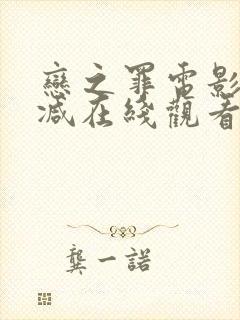 戀之罪電影
減在綫觀看
龔一諾